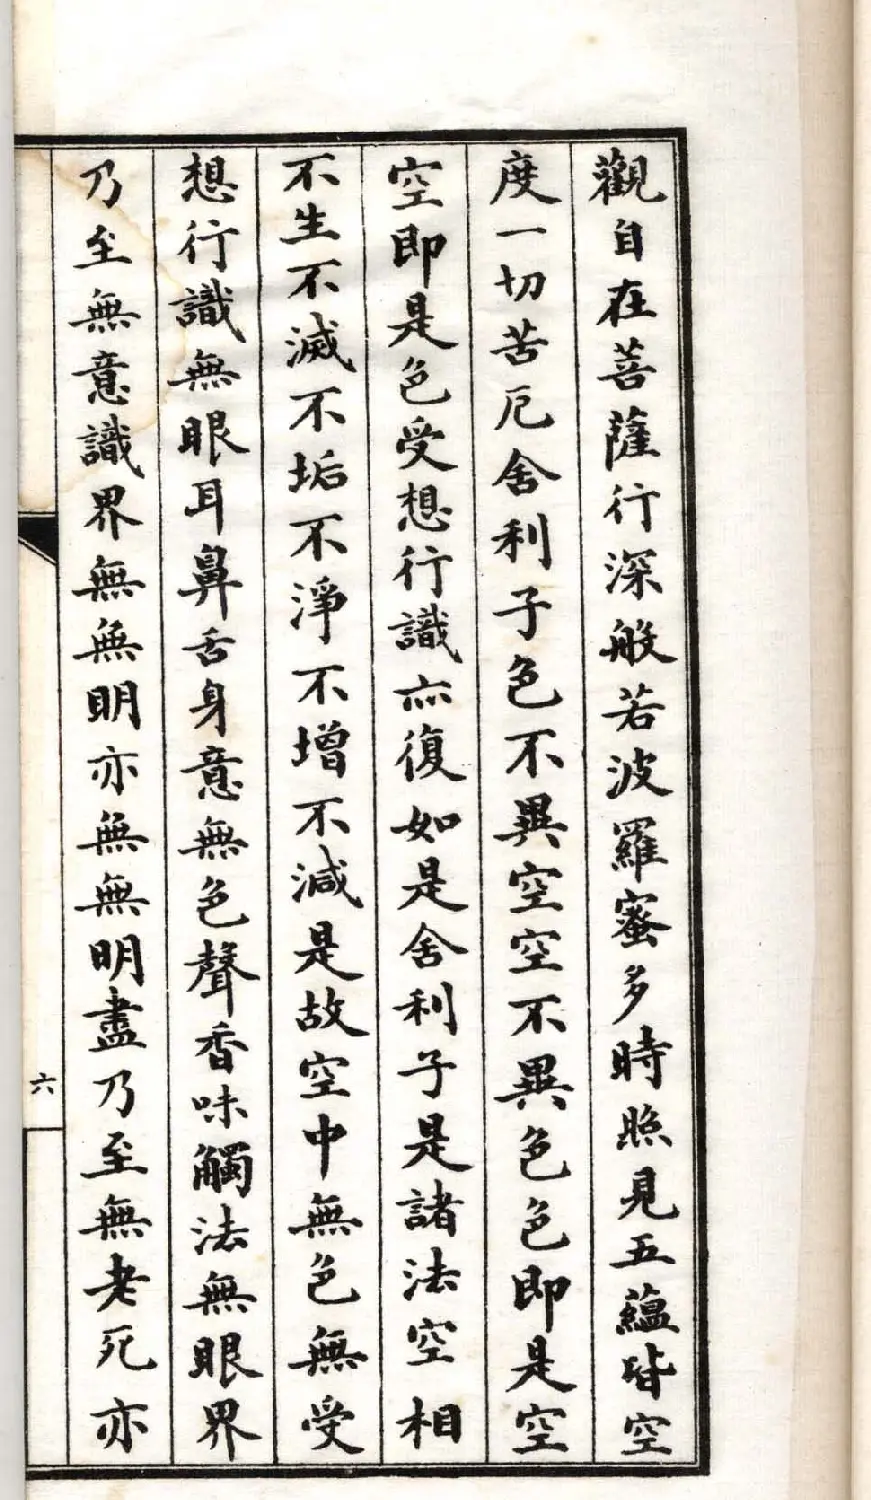 觀自在菩薩行深般若波羅蜜多時照見五蘊皆空
度一切苦厄舍利子色不異空空不異色色即是空
空即是色受想行識亦復如是舍利子是諸法空相
不生不滅不垢不淨不增不減是故空中無色無受
想行識無眼耳鼻舌身意無色聲香味觸法無眼界
乃至無意識界無無明亦無無明盡乃至無老死亦
六